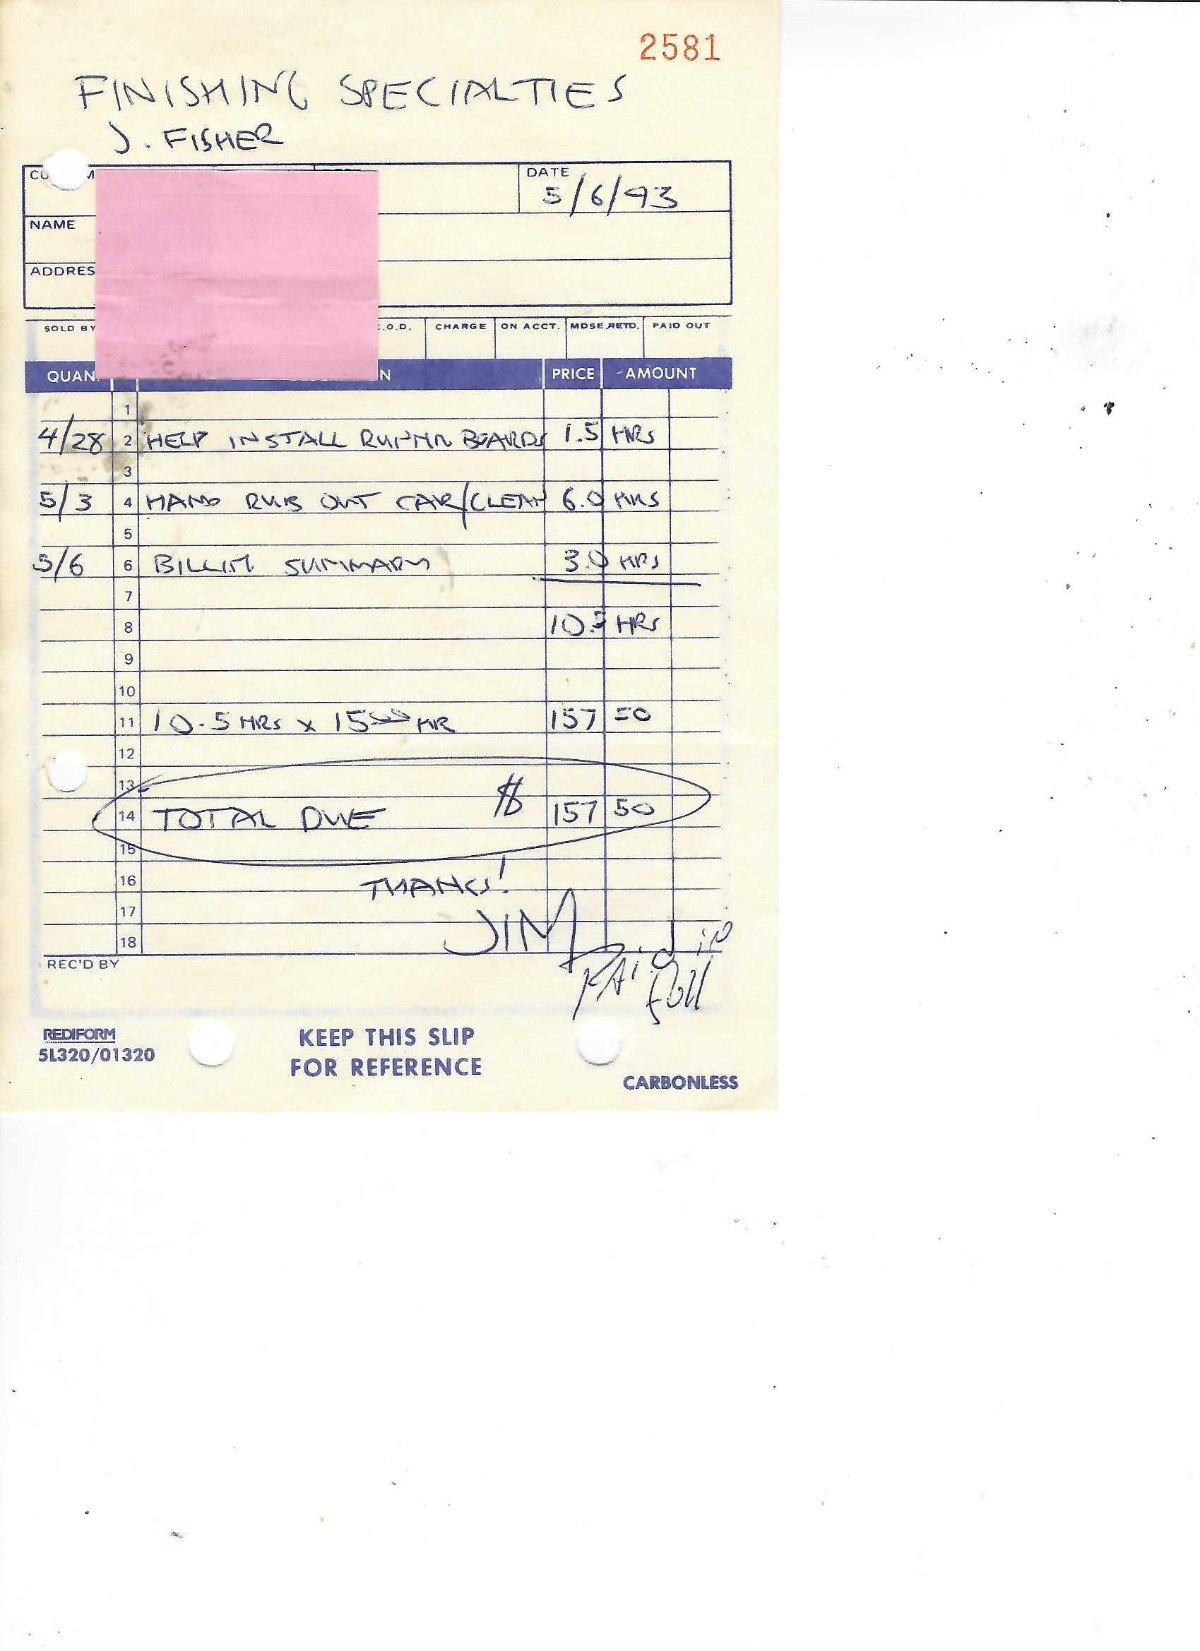 2581
FINISHING SPECIALTIES
J. FISHER
DATE
5/6/93
NAME
ADDRES
SOLD BY .O.D. CHARGE ON ACCT. MDSE. RETD. PAID OUT
QUAN. N PRICE AMOUNT
1
4/28 2 HELP INSTALL RUNNIN BOARDS 1.5 HRS
3
5/3 4 HAND RUB OUT CAR/CLEAN 6.0 HRS
5
5/6 6 BILLIN SUMMARY 3.0 HRS
7
8 10.5 HRS
9
10
11 10.5 HRS x 15.00 HR 157 50
12
13
14 TOTAL DUE $ 157 50
15
16 THANKS!
17
18 JIM
REC'D BY
PAID in full
REDIFORM
5L320/01320
KEEP THIS SLIP
FOR REFERENCE
CARBONLESS